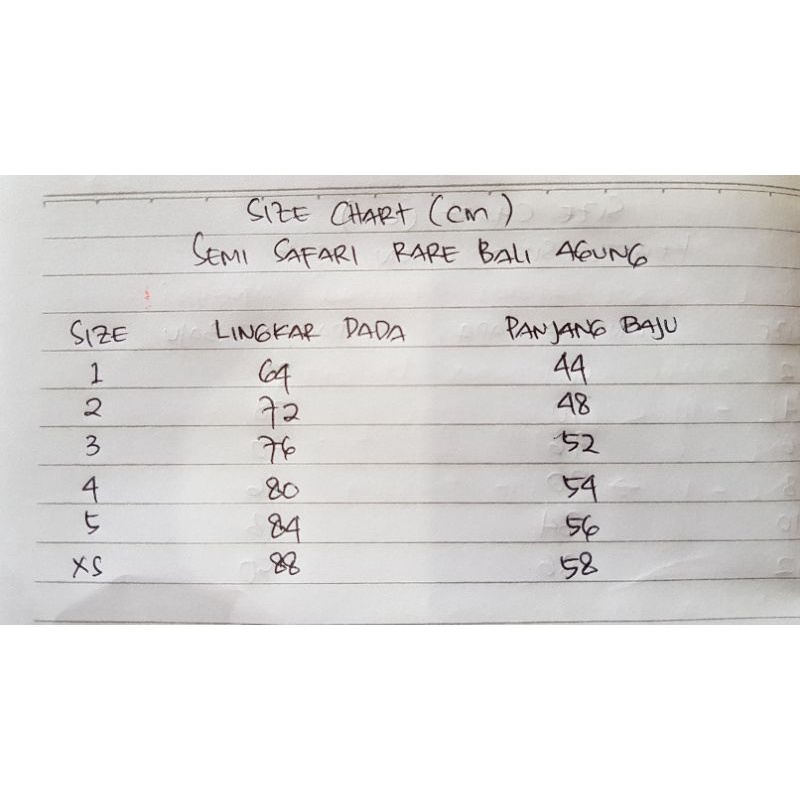 SIZE CHART (cm)
SEMI SAFARI RARE BALI AGUNG
SIZE LINGKAR DADA PANJANG BAJU
1 64 44
2 72 48
3 76 52
4 80 54
5 84 56
XS 88 58